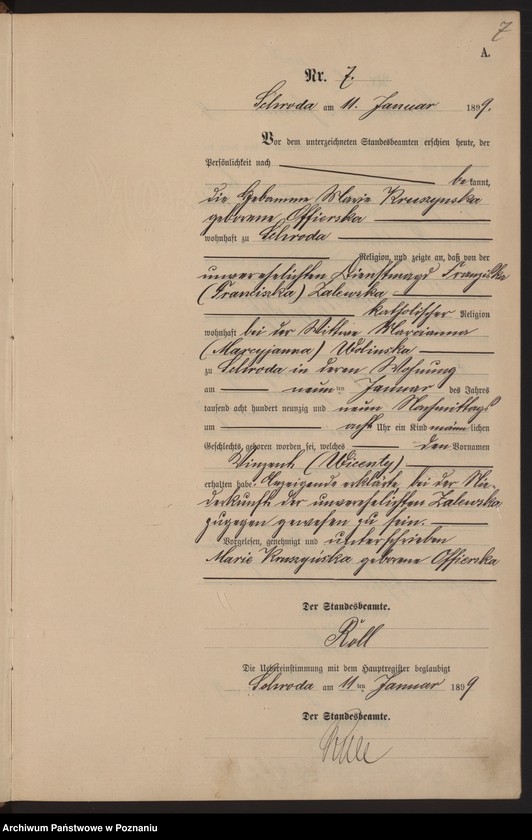 7
A.
Nr. 7.
Schroda am 11. Januar 1899.
Vor dem unterzeichneten Standesbeamten erschien heute, der
Persönlichkeit nach
bekannt,
die Hebamme Marie Kruszynska
geborene Offierska
wohnhaft zu Schroda
Religion, und zeigte an, daß von der
unverehelichten Dienstmagd Franziska
(Franciszka) Zalewska
katholischer Religion
wohnhaft bei der Wittwe Marcianna
(Marcyjanna) Wolinska
zu Schroda in deren Wohnung
am neunten Januar des Jahres
tausend acht hundert neunzig und neun Nachmittags
um acht Uhr ein Kind männlichen
Geschlechts, geboren worden sei, welches den Vornamen
Vinzent (Wicenty)
erhalten habe. Anzeigende erklärte, bei der Nie-
derkunft der unverehelichten Zalewska
zugegen gewesen zu sein.
Vorgelesen, genehmigt und unterschrieben
Marie Kruszyńska geborene Offierska
Der Standesbeamte.
Röll
Die Uebereinstimmung mit dem Hauptregister beglaubigt
Schroda am 11ten Januar 1899
Der Standesbeamte.
Archiwum Państwowe w Poznaniu